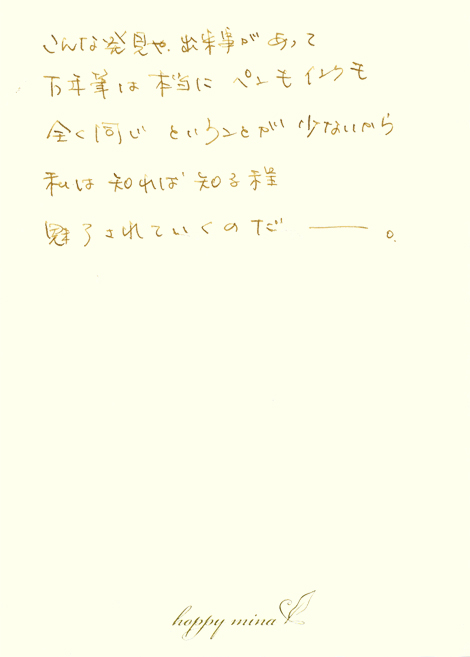 こんな発見や、出来事があって
万年筆は本当に ペンもインクも
全く同じ ということが 少ないから
私は 知れば 知る程
魅了されていくのだ ――。
hoppy mina